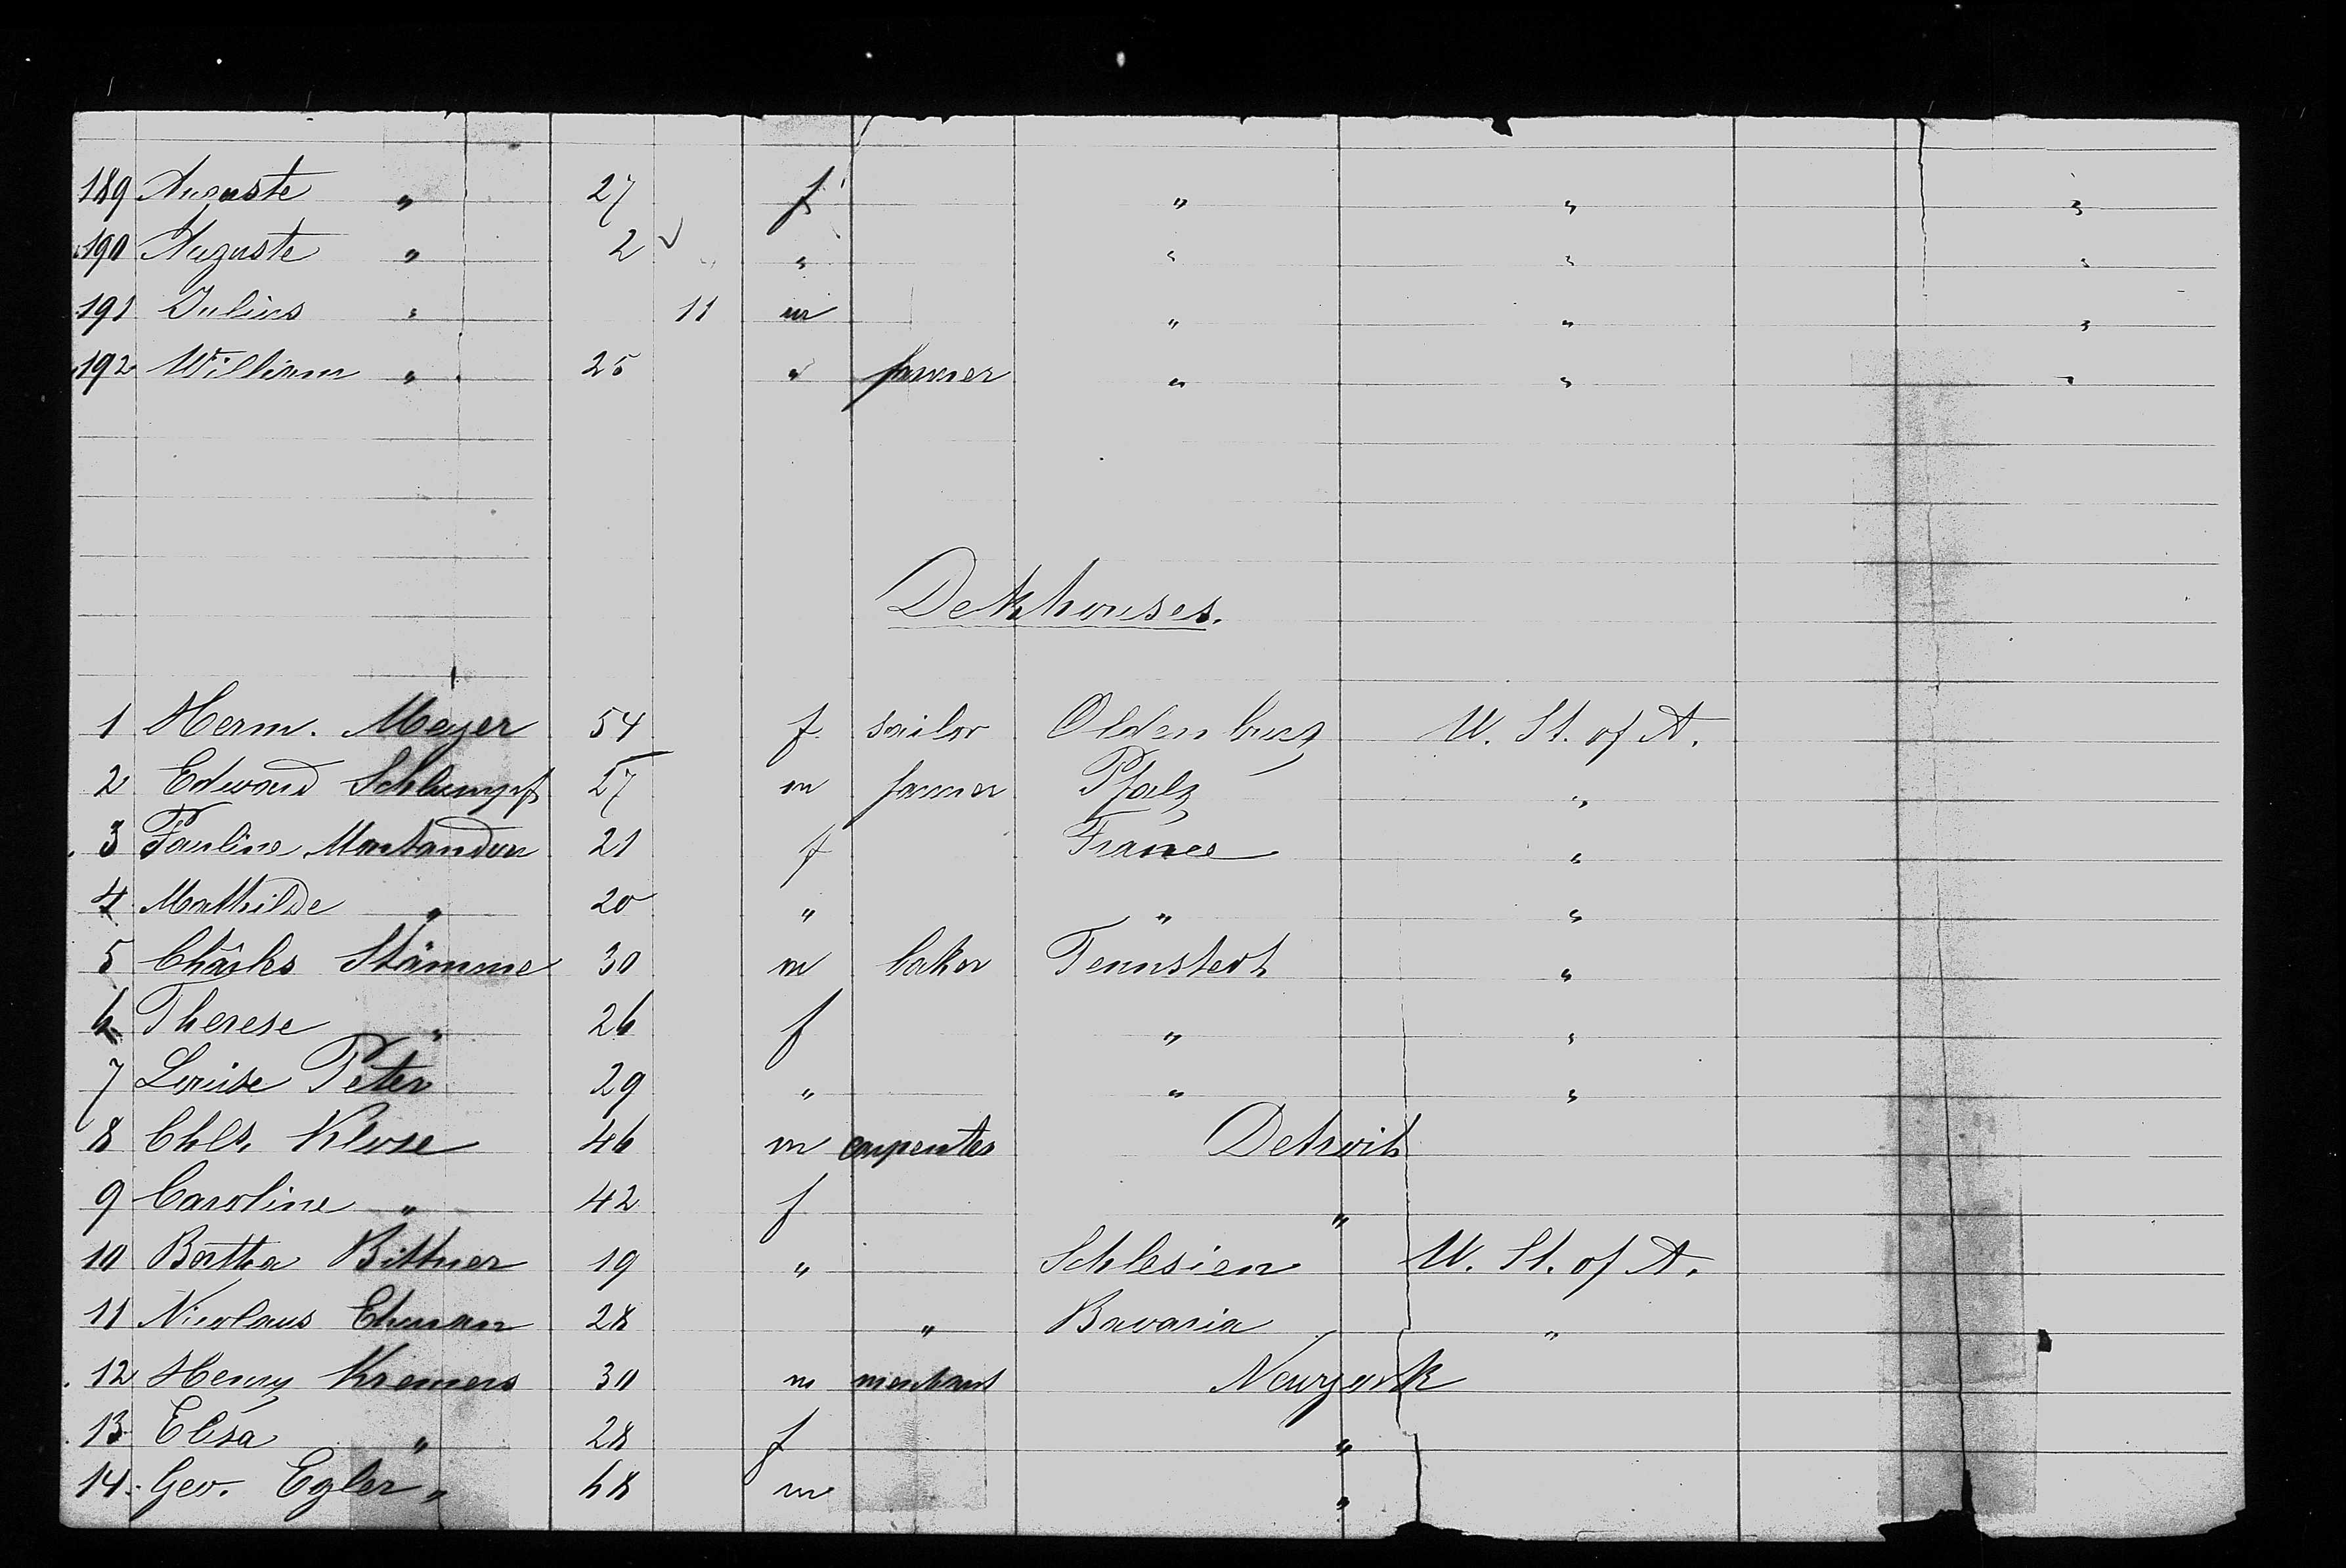 189 Auguste " 27 f " " "
190 Auguste " 2 " " " "
191 Julius " 11 m " " "
192 William " 25 " farmer " " "
Dekhouses.
1 Herm. Meyer 54 f. sailor Oldenburg U. St. of A.
2 Edward Schlumpf 27 m farmer Pfalz "
3 Pauline Montandon 21 f France "
4 Mathilde " 20 " " "
5 Charles Stämme 30 m baker Tennstedt "
6 Therese " 26 f " "
7 Louise Peter 29 " " "
8 Chls. Klose 46 m carpenter Detroit
9 Caroline " 42 f "
10 Bertha Bittner 19 " Schlesien U. St. of A.
11 Nicolaus Ehman 28 " Bavaria "
12 Henry Kremers 30 m merchant Newyork
13 Elisa " 28 f "
14 Geo. Egler " 68 m "